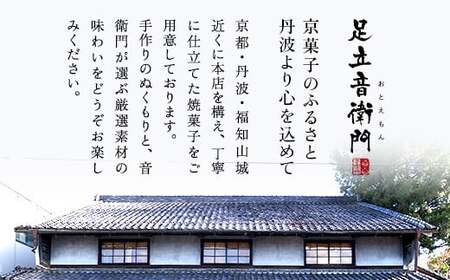 足立音衛門
おとえもん
京菓子のふるさと
丹波より心を込めて
京都・丹波・福知山城
近くに本店を構え、丁寧
に仕立てた焼菓子をご
用意しております。
手作りのぬくもりと、音
衛門が選ぶ厳選素材の
味わいをどうぞお楽し
みください。